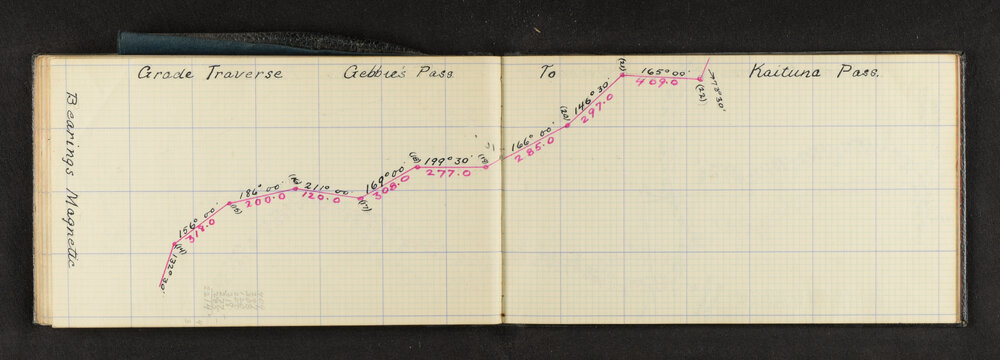 Grade Traverse Gebbie's Pass To Kaituna Pass.
Bearings Magnetic
132°30'
(14)
156° 00'
318.0
(15)
186° 00'
200.0
(16)
211° 00'
120.0
(17)
169° 00'
308.0
(18)
199° 30'
277.0
(19)
166° 00'
285.0
(20)
146° 30'
297.0
(21)
165° 00'
409.0
(22)